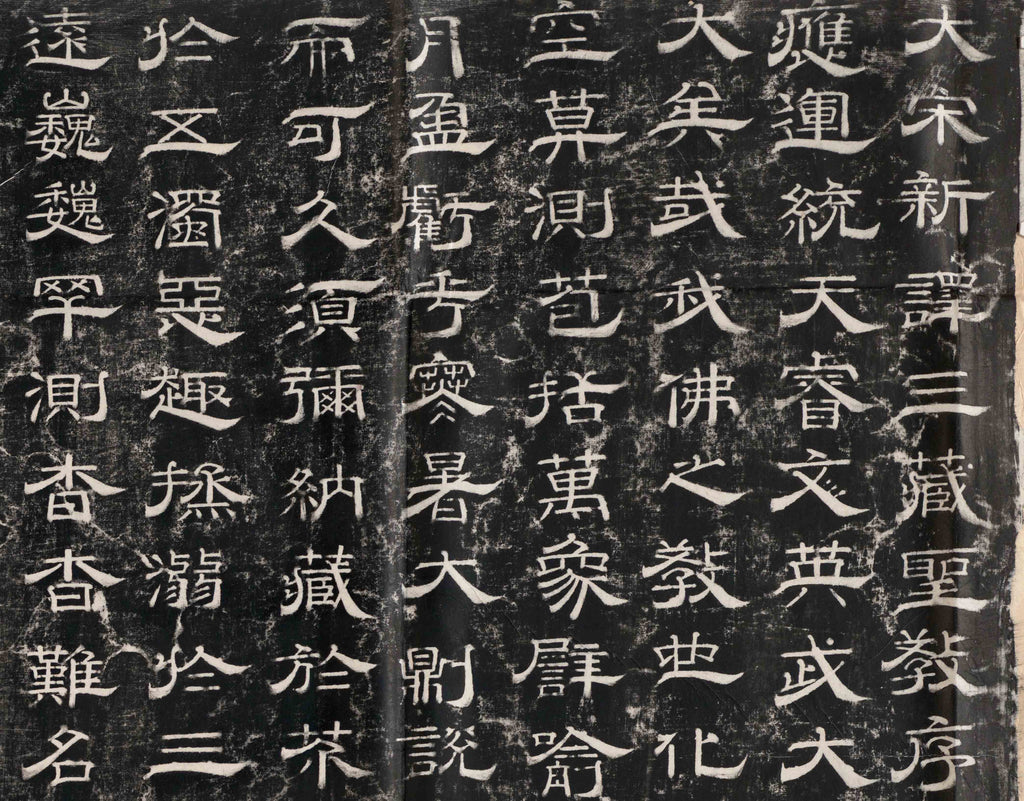 大宋新譯三藏聖教序
應運統天睿文英武大
大矣哉我佛之教也化
空莫測苞括萬象譬喻
月盈虧乎寒暑大則說
而可久須彌納藏於芥
於五濁惡趣拯溺於三
遠巍巍罕測杳杳難名